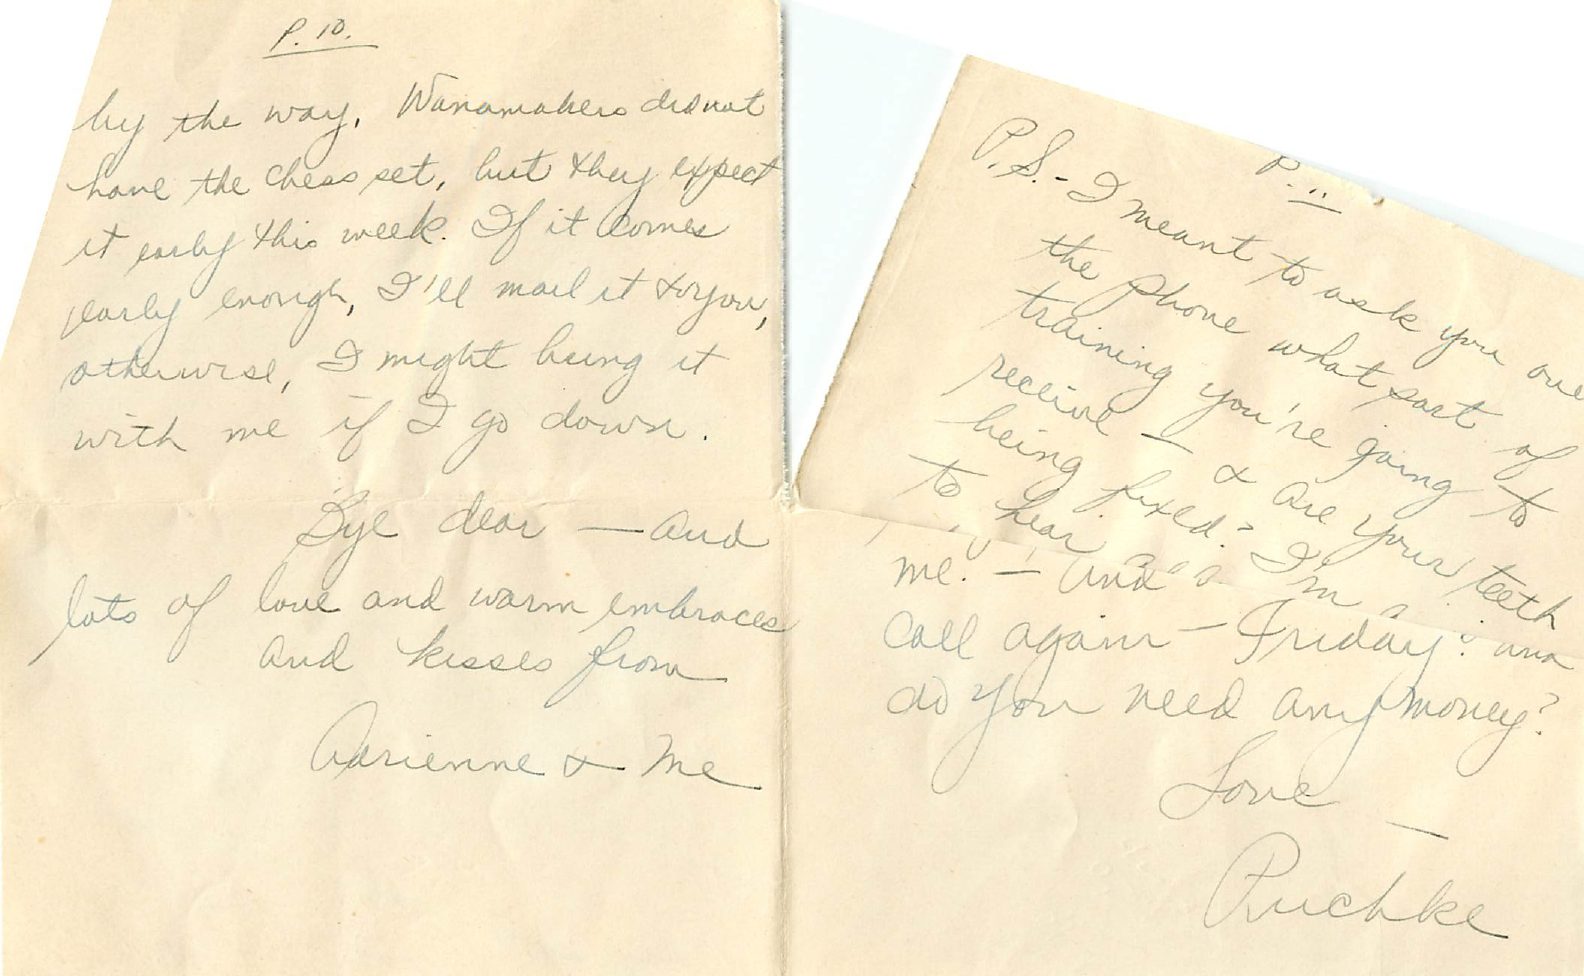 P. 10.
by the way, Wanamakers did not
have the chess set, but they expect
it early this week. If it comes
early enough, I'll mail it to you,
otherwise, I might bring it
with me if I go down.
Bye dear — and
lots of love and warm embraces
and kisses from
Adrienne & Me
P. 11
P.S. - I meant to ask you over
the phone what sort of
training you're going to
receive — & are your teeth
being fixed? I'm
to hear
me. — and
call again — Friday? and
do you need any money?
Love —
Ruchke